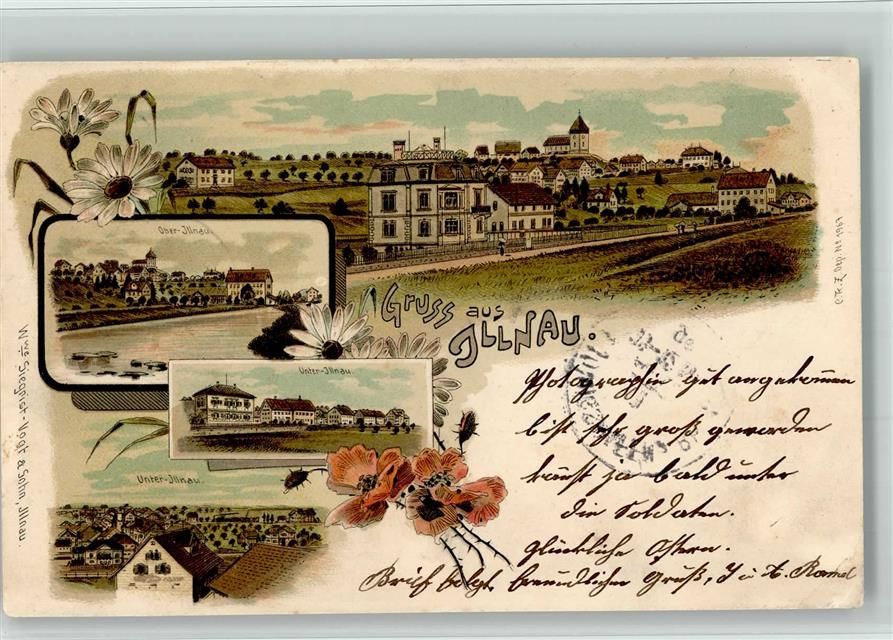 Ober-Illnau.
Gruss aus
Illnau.
Unter-Illnau.
Unter-Illnau.
Wwe. Siegrist-Vogt & Sohn, Illnau.
C.K.Z. Dep. No 1967
Photographie gut angekommen
bist sehr groß geworden
kannst ja bald unter
die Soldaten.
Glückliche Ostern.
Brief folgt. freundlichen Gruß,